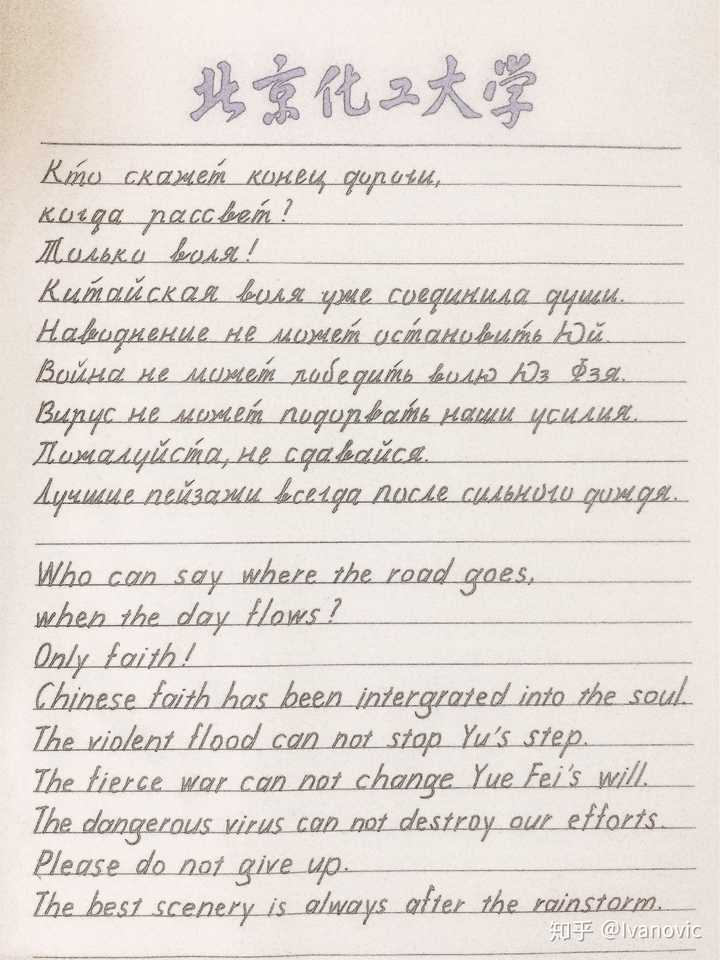 北京化工大学
Кто скажет конец дороги,
когда рассвет?
Только воля!
Китайская воля уже соединила души.
Наводнение не может остановить Юй.
Война не может победить волю Юэ Фэя.
Вирус не может подорвать наши усилия.
Пожалуйста, не сдавайся.
Лучшие пейзажи всегда после сильного дождя.
Who can say where the road goes,
when the day flows?
Only faith!
Chinese faith has been intergrated into the soul.
The violent flood can not stop Yu's step.
The fierce war can not change Yue Fei's will.
The dangerous virus can not destroy our efforts.
Please do not give up.
The best scenery is always after the rainstorm.
知乎 @Ivanovic